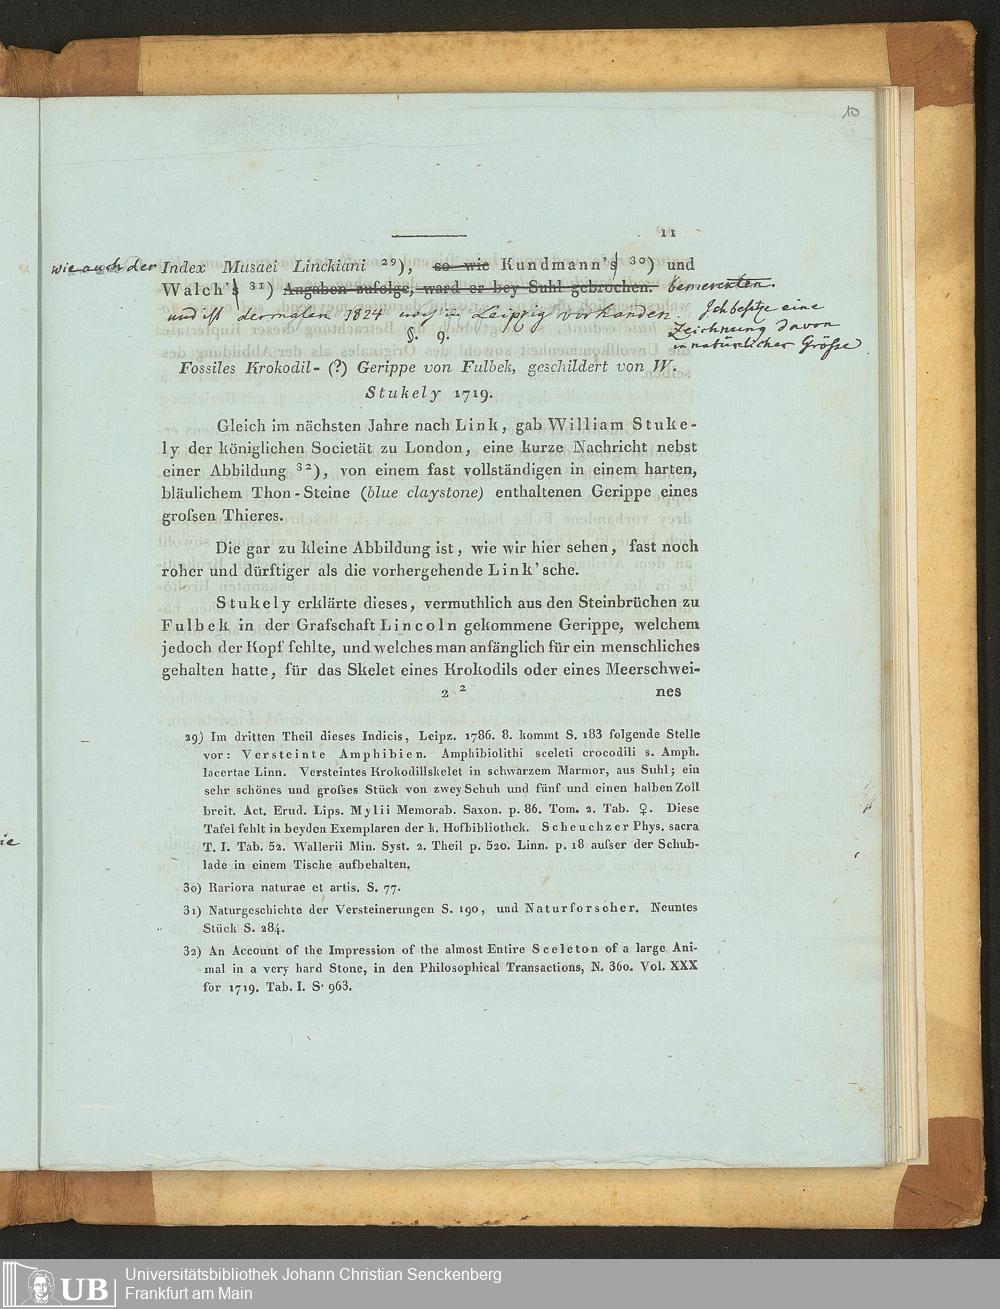 10
11
wie auch der Index Musaei Linckiani 29), so wie Kundmann's 30) und
Walch's 31) Angaben zufolge, ward er bey Suhl gebrochen. bemerckten.
und ist dermalen 1824 noch in Leipzig vorhanden. Ich besitze eine
Zeichnung davon
in natürlicher Größe.
§. 9.
Fossiles Krokodil- (?) Gerippe von Fulbek, geschildert von W.
Stukely 1719.
Gleich im nächsten Jahre nach Link, gab William Stuke-
ly der königlichen Societät zu London, eine kurze Nachricht nebst
einer Abbildung 32), von einem fast vollständigen in einem harten,
bläulichem Thon-Steine (blue claystone) enthaltenen Gerippe eines
grofsen Thieres.
Die gar zu kleine Abbildung ist, wie wir hier sehen, fast noch
roher und dürftiger als die vorhergehende Link'sche.
Stukely erklärte dieses, vermuthlich aus den Steinbrüchen zu
Fulbek in der Grafschaft Lincoln gekommene Gerippe, welchem
jedoch der Kopf fehlte, und welches man anfänglich für ein menschliches
gehalten hatte, für das Skelet eines Krokodils oder eines Meerschwei-
2 2 nes
29) Im dritten Theil dieses Indicis, Leipz. 1786. 8. kommt S. 183 folgende Stelle
vor: Versteinte Amphibien. Amphibiolithi sceleti crocodili s. Amph.
lacertae Linn. Versteintes Krokodillskelet in schwarzem Marmor, aus Suhl; ein
sehr schönes und grofses Stück von zwey Schuh und fünf und einen halben Zoll
breit. Act. Erud. Lips. Mylii Memorab. Saxon. p. 86. Tom. 2. Tab. ♀. Diese
Tafel fehlt in beyden Exemplaren der k. Hofbibliothek. Scheuchzer Phys. sacra
T. I. Tab. 52. Wallerii Min. Syst. 2. Theil p. 520. Linn. p. 18 aufser der Schub-
lade in einem Tische aufbehalten.
30) Rariora naturae et artis. S. 77.
31) Naturgeschichte der Versteinerungen S. 190, und Naturforscher. Neuntes
Stück S. 284.
32) An Account of the Impression of the almost Entire Sceleton of a large Ani-
mal in a very hard Stone, in den Philosophical Transactions, N. 360. Vol. XXX
for 1719. Tab. I. S. 963.
UB
Universitätsbibliothek Johann Christian Senckenberg
Frankfurt am Main